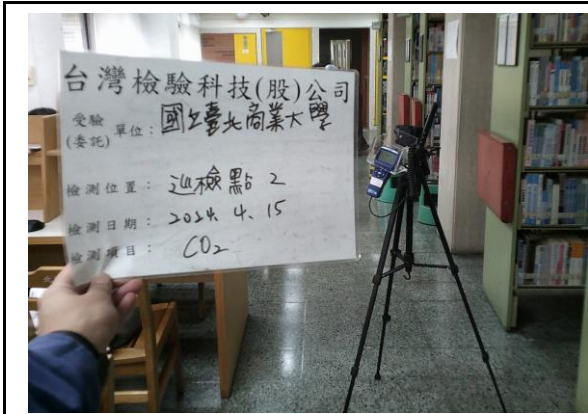 台灣檢驗科技(股)公司
受驗(委託)單位：國立臺北商業大學
檢測位置：巡檢點 2
檢測日期：2024. 4. 15
檢測項目：CO2